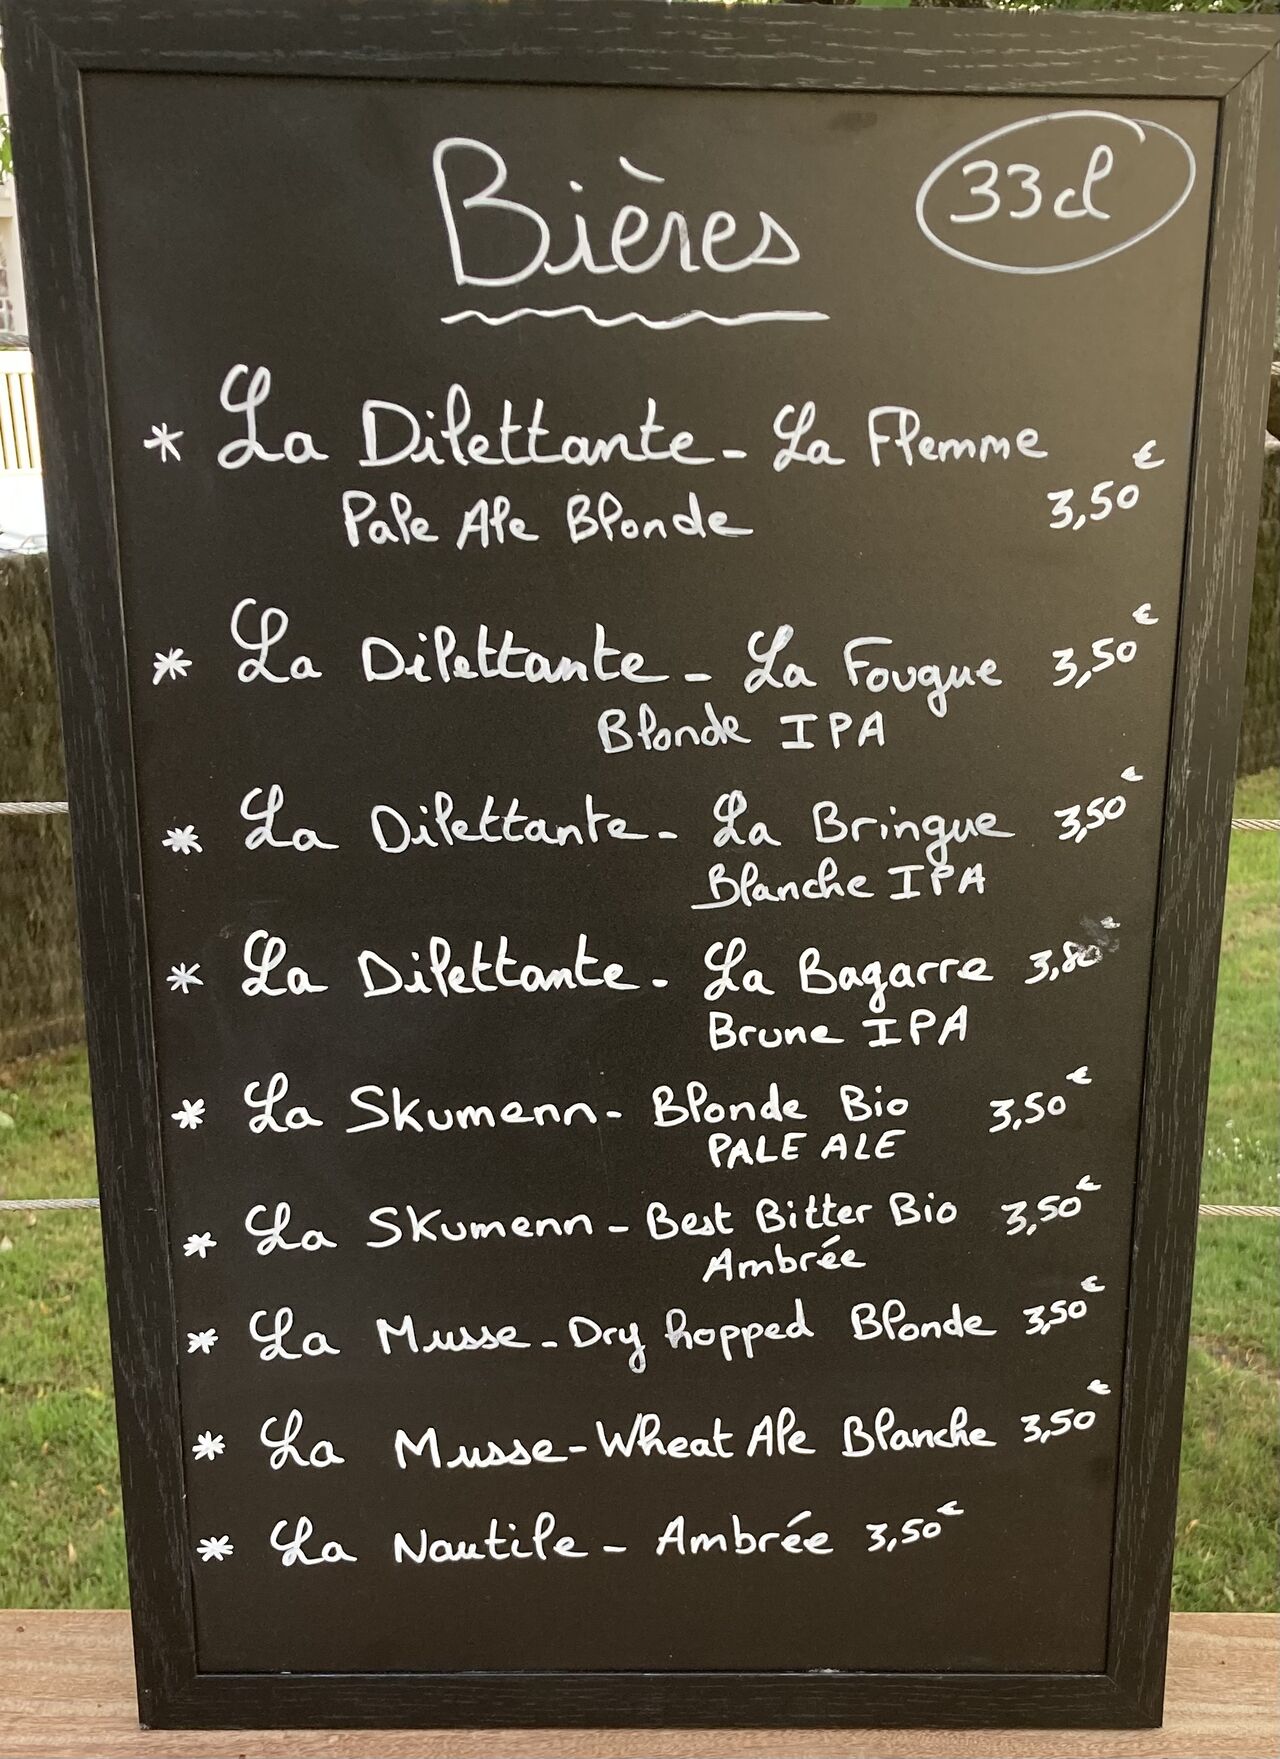 Bières
33cl
* La Dilettante - La Flemme
Pale Ale Blonde 3,50€
* La Dilettante - La Fougue 3,50€
Blonde IPA
* La Dilettante - La Bringue 3,50€
Blanche IPA
* La Dilettante - La Bagarre 3,80€
Brune IPA
* La Skumenn - Blonde Bio 3,50€
PALE ALE
* La Skumenn - Best Bitter Bio 3,50€
Ambrée
* La Musse - Dry hopped Blonde 3,50€
* La Musse - Wheat Ale Blanche 3,50€
* La Nautile - Ambrée 3,50€